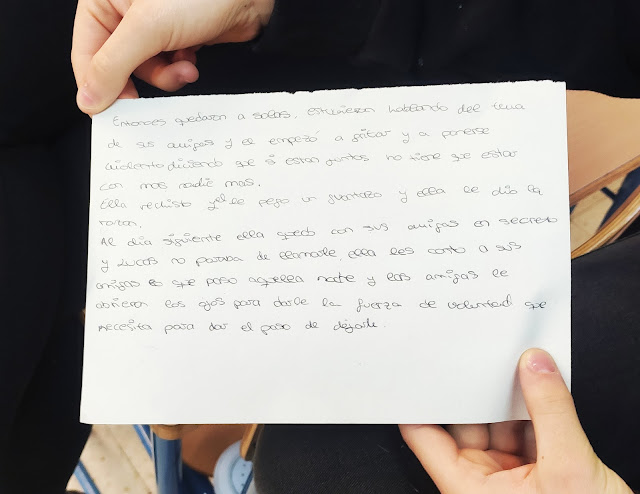 Entonces quedaron a solas, estuvieron hablando del tema
de sus amigas y el empezó a gritar y a ponerse
violento diciendo que si estan juntos no tiene que estar
con mas nadie mas.
Ella rechisto y el le pego un guantazo y ella le dio la
razon.
Al dia siguiente ella quedo con sus amigas en secreto
y Lucas no paraba de llamarle, ella les conto a sus
amigas lo que paso aquella noche y las amigas le
abrieron los ojos para darle la fuerza de voluntad que
necesita para dar el paso de dejarle.